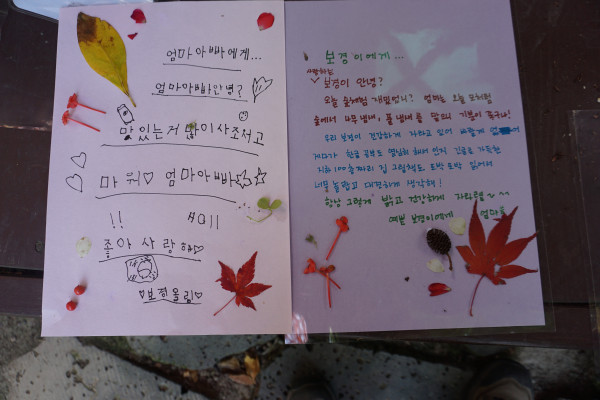 엄마아빠에게...
엄마아빠안녕?
맛있는거 많이사조서고
마워♡ 엄마아빠
!!
좋아사랑해♡
♡보경올림♡
보경이에게...
사랑하는
보경이 안녕?
오늘 숲체험 재밌었니? 엄마는 오늘 모처럼
숲에서 나무냄새, 풀냄새를 맡으니 기분이 좋구나!
우리 보경이 건강하게 자라고 있어
게다가 한글 공부도 열심히 해서 인지
지하 100층짜리 집 그림책도 또박또박 읽어서
너무 놀랍고 대견하게 생각해!
항상 그렇게 밝고 건강하게 자라렴~~
예쁜 보경이에게 엄마